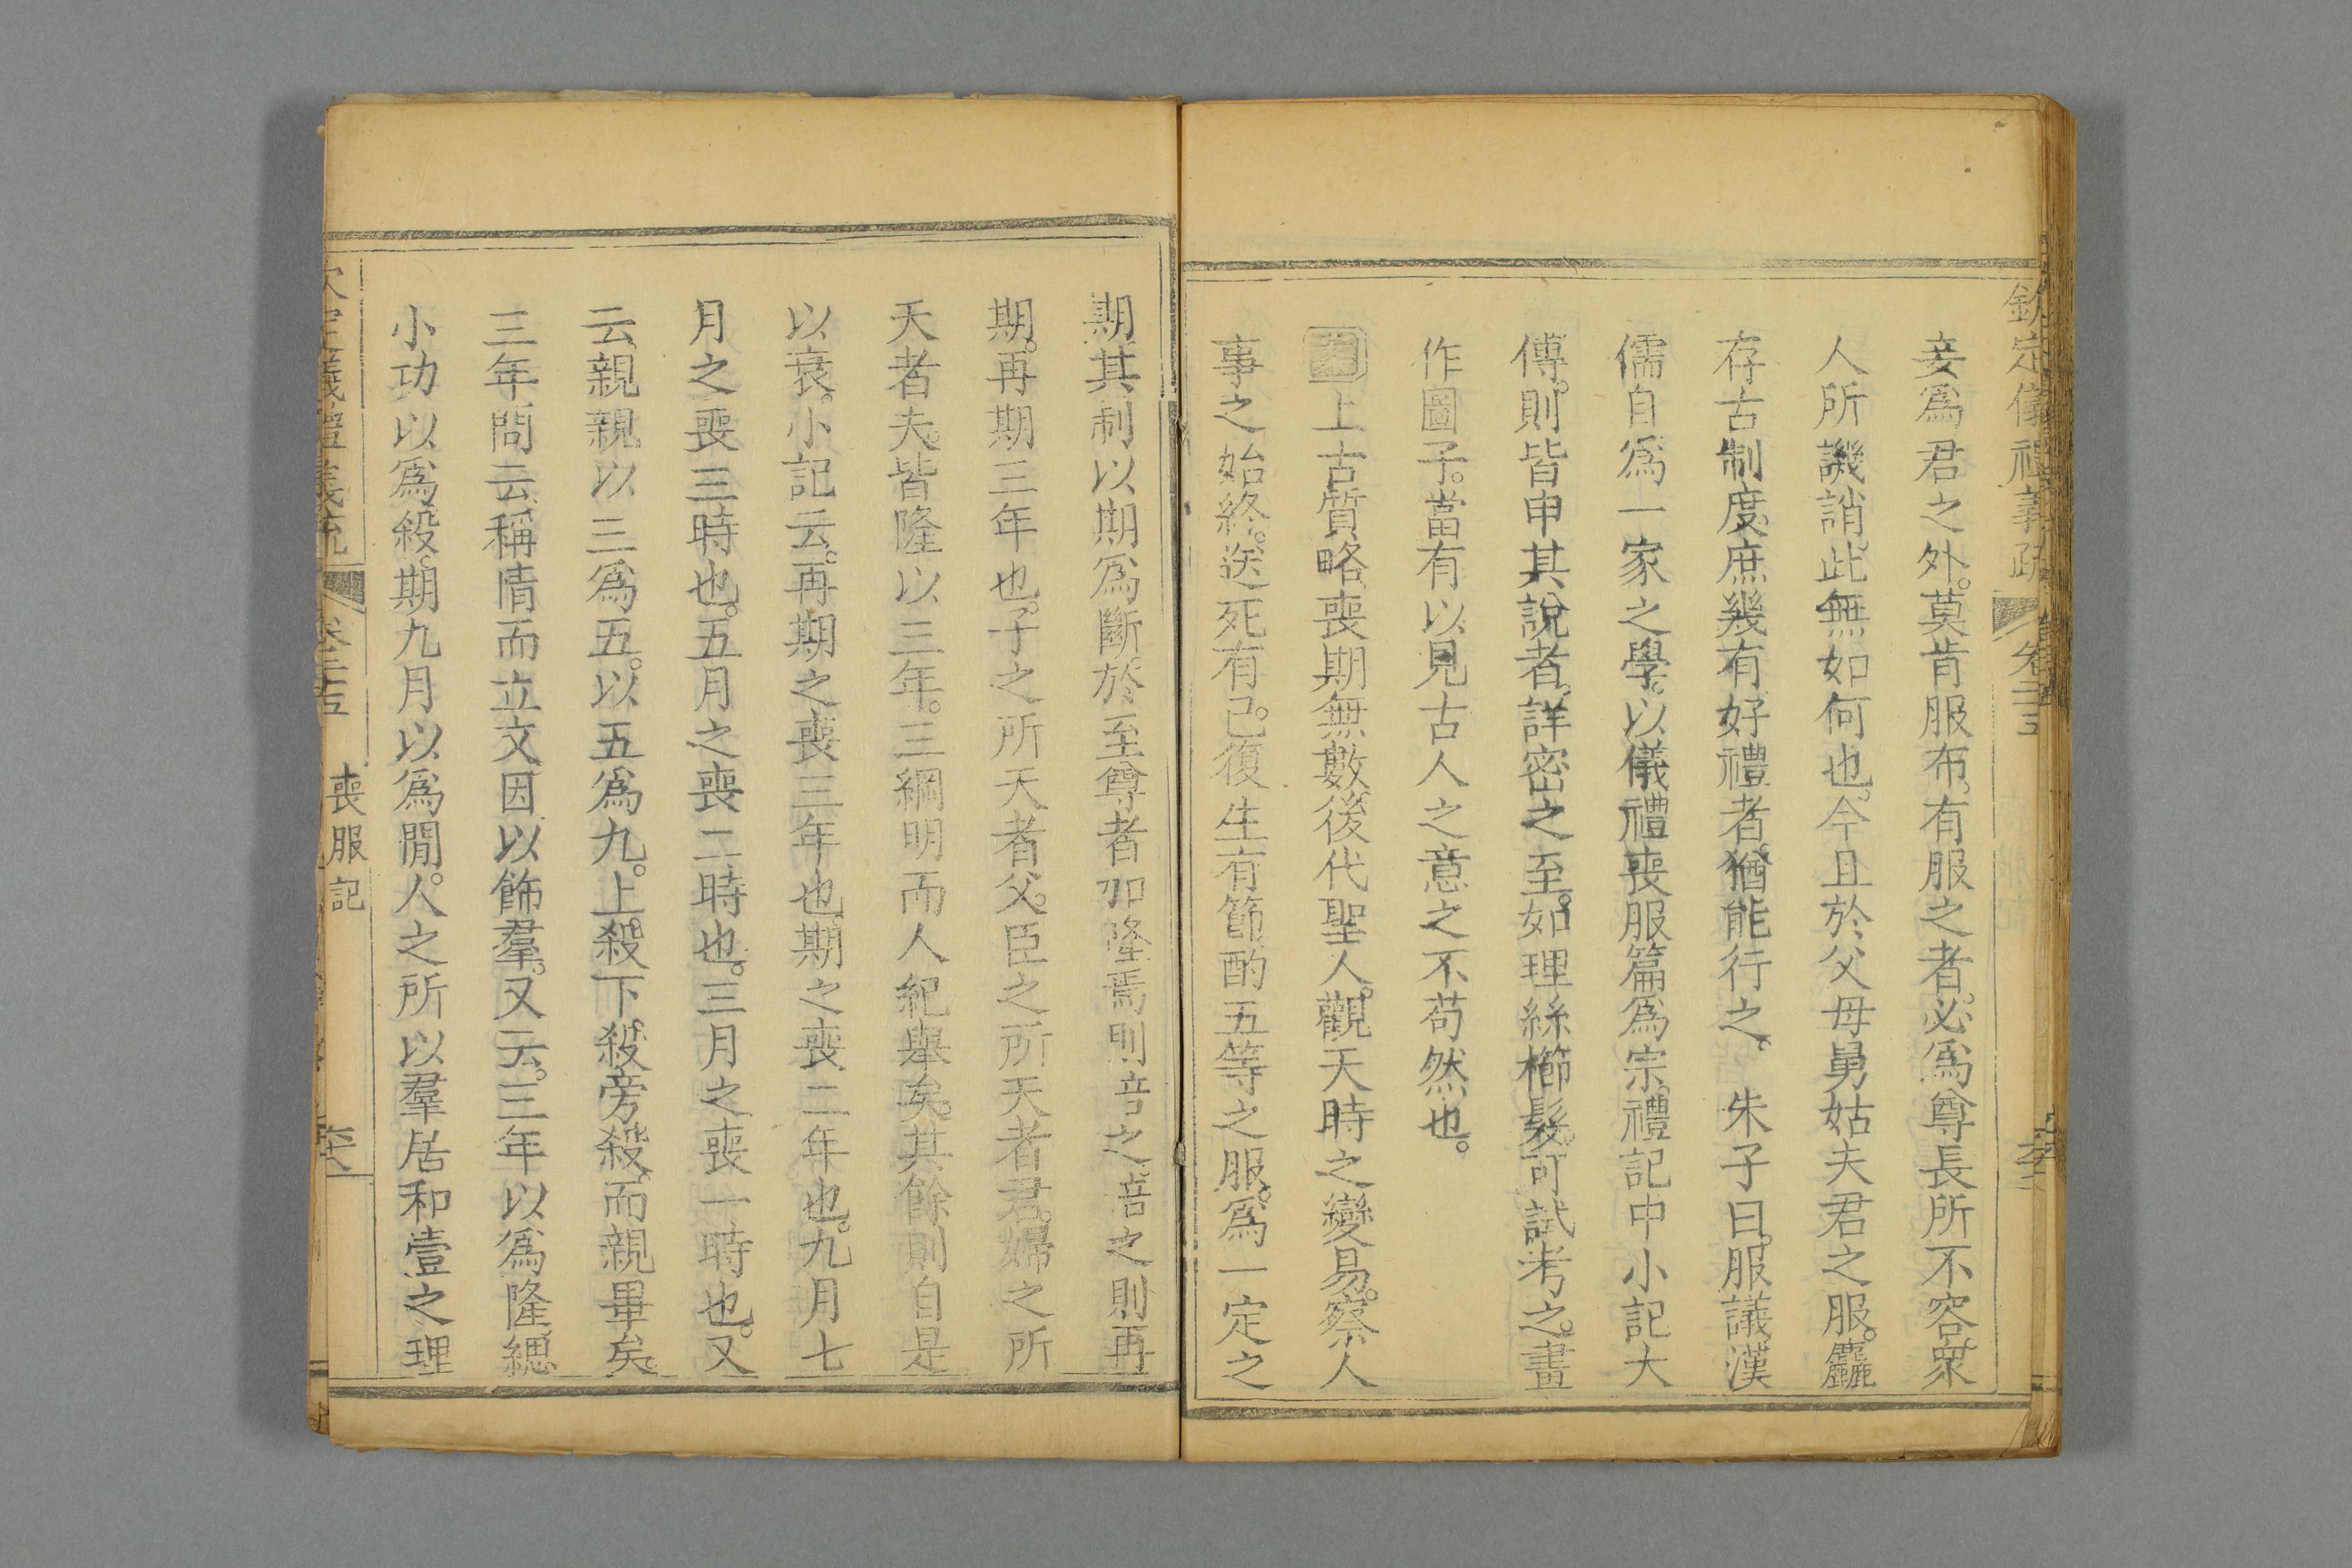 欽定儀禮義疏 卷二十五
妾爲君之外。莫肯服布。有服之者。必爲尊長所不容。衆
人所譏誚。此無如何也。今且於父母舅姑夫君之服。麤
存古制度。庶幾有好禮者。猶能行之。 朱子曰。服議。漢
儒自爲一家之學。以儀禮喪服篇爲宗。禮記中小記大
傳。則皆申其說者。詳密之至。如理絲櫛髮。可試考之。畫
作圖子。當有以見古人之意之不苟然也。
上古質略。喪期無數。後代聖人。觀天時之變易。察人
事之始終。送死有已。復生有節。酌五等之服。爲一定之
期。其制以期爲斷。於至尊者加隆焉。則音之。音之則再
期。再期三年也。子之所天者父。臣之所天者君。婦之所
天者夫。皆隆以三年。三綱明而人紀舉矣。其餘則自是
以衰。小記云。再期之喪三年也。期之喪二年也。九月七
月之喪三時也。五月之喪二時也。三月之喪一時也。又
云。親親以三爲五。以五爲九。上殺下殺旁殺。而親畢矣。
三年問云。稱情而立文。因以飾羣。又云。三年以爲隆。緦
小功以爲殺。期九月以爲閒。人之所以羣居和壹之理
欽定儀禮義疏 卷二十五 喪服記